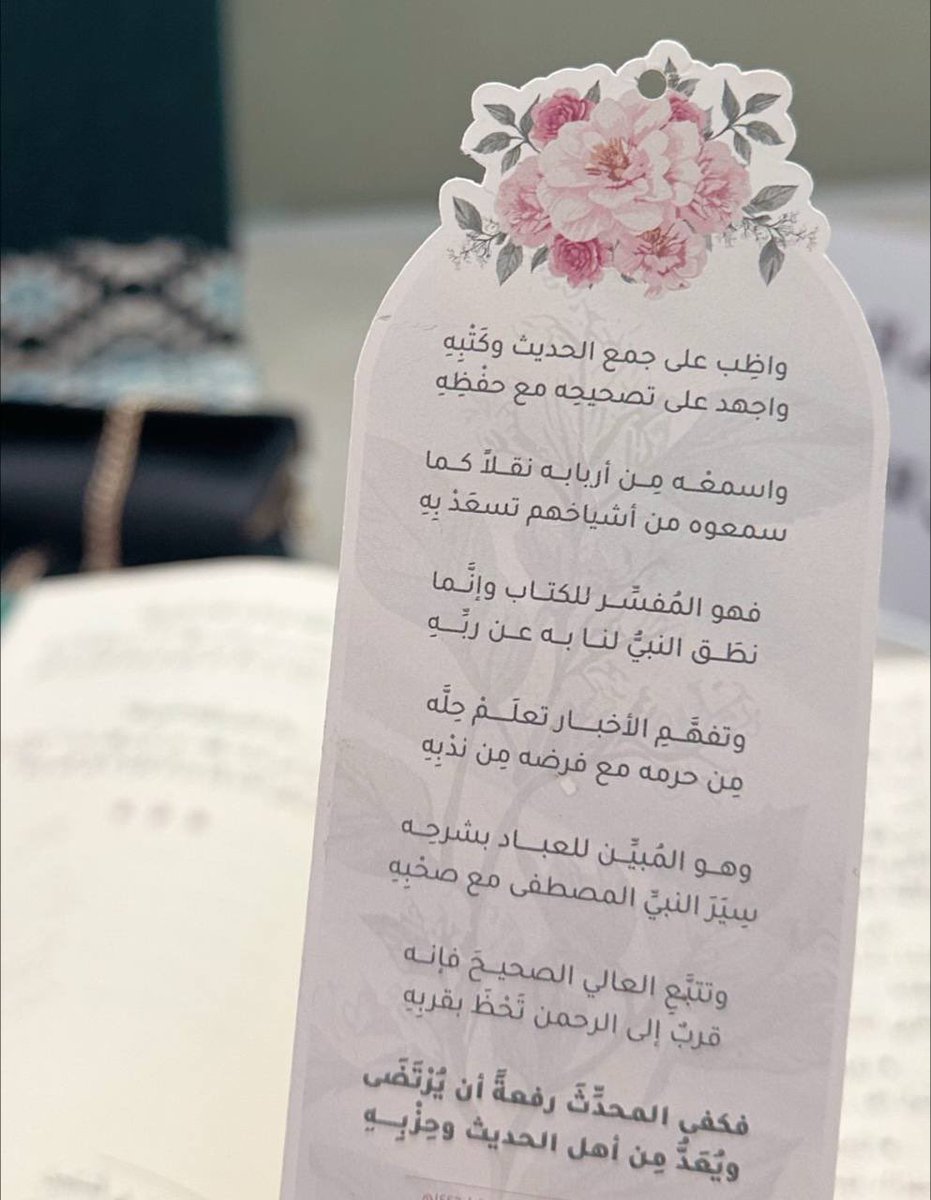 واظِب على جمع الحديث وكَتْبِهِ
واجهد على تصحيحِه مع حفْظِهِ
واسمعْـه مِـن أربابـه نقـلاً كـما
سمعوه من أشياخهم تسعَدْ بِهِ
فهو المُفسِّـر للكتـاب وإنَّـما
نطَـق النبيُّ لنـا بـه عـن ربِّـهِ
وتفهَّـمِ الأخبـار تعلَـمْ حِلَّه
مِن حرمه مع فرضه مِن ندْبِهِ
وهـو المُبيِّـن للعبـاد بشرحِـه
سِيَرَ النبيِّ المصطفى مع صحْبِهِ
وتتبَّعِ العالي الصحيـحَ فإنـه
قربٌ إلى الرحمن تَحْظَ بقربِهِ
فكفى المحدِّثَ رفعةً أن يُرْتَضَى
ويُعَدُّ مِن أهل الحديث وحِزْبِـهِ